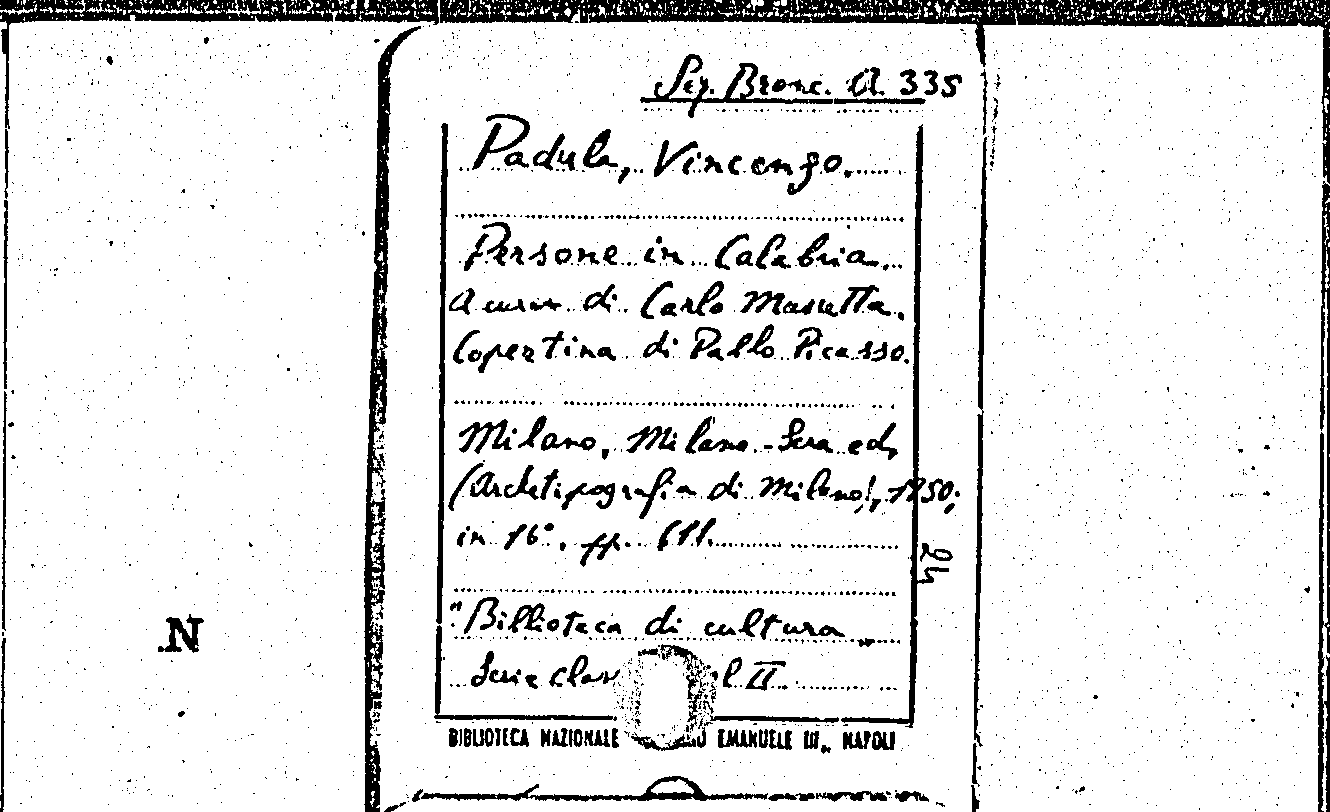 Sez. Bronc. A. 335
Padula, Vincenzo.
Persone in Calabria.
A cura di Carlo Muscetta.
Copertina di Pablo Picasso.
Milano, Milano-Sera ed.
(Archetipografia di Milano), 1950;
in 16°. pp. 611.
24
"Biblioteca di cultura„
Serie vol II.
N
BIBLIOTECA NAZIONALE EMANUELE III„ NAPOLI